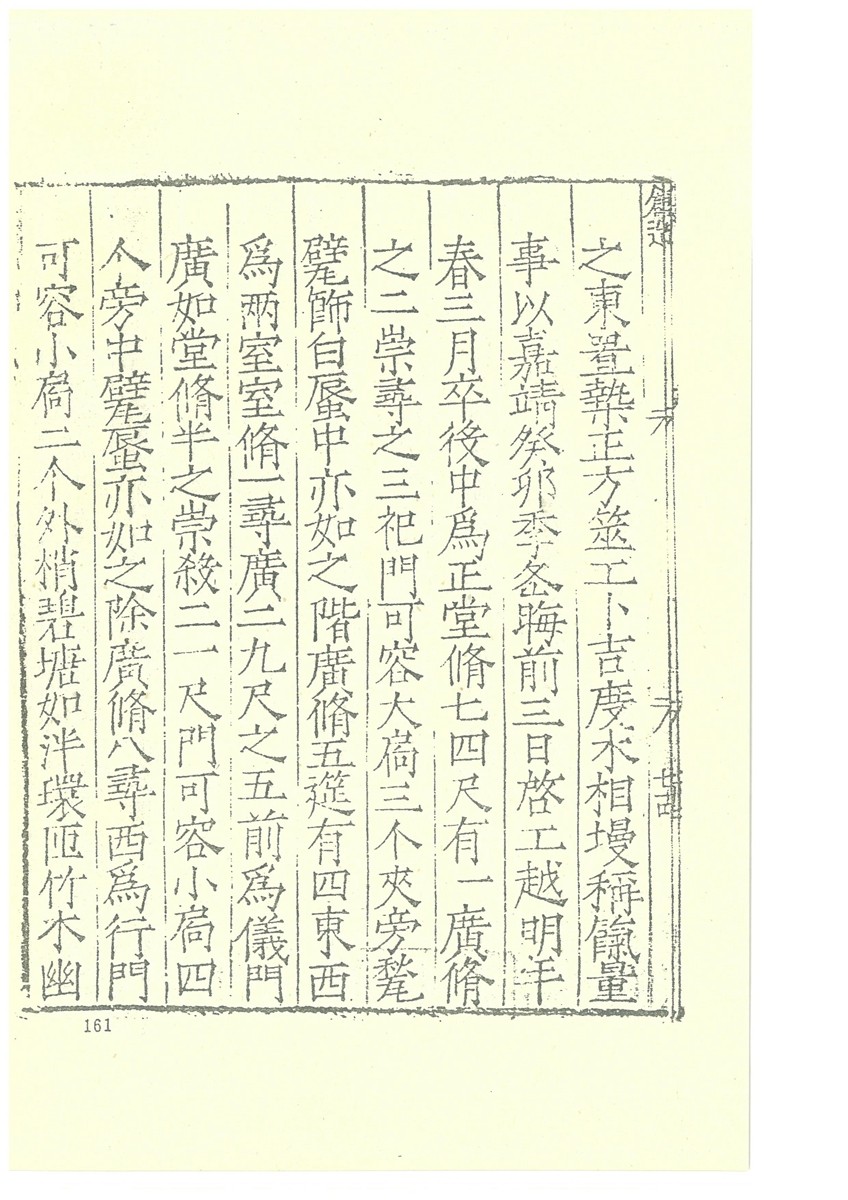 之東置槷正方筮工卜吉度木相墁稱餼量
事以嘉靖癸卯季冬晦前三日啓工越明年
春三月卒後中爲正堂脩七四尺有一廣脩
之二崇尋之三祀門可容大扃三个夾旁甃
甓飾白蜃中亦如之階廣脩五筵有四東西
爲兩室室脩一尋廣二九尺之五前爲儀門
廣如堂脩半之崇殺二一尺門可容小扃四
个旁中甓蜃亦如之除廣脩八尋西爲行門
可容小扃二个外梢碧塘如泮環匝竹木幽
161